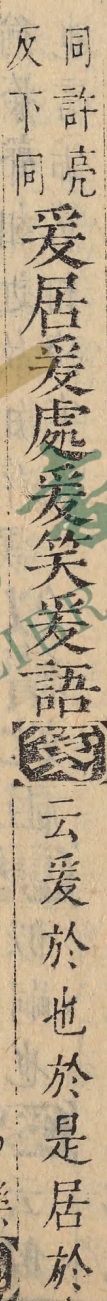 同許亮
反下同
爰居爰處爰笑爰語箋云爰於也於是居於